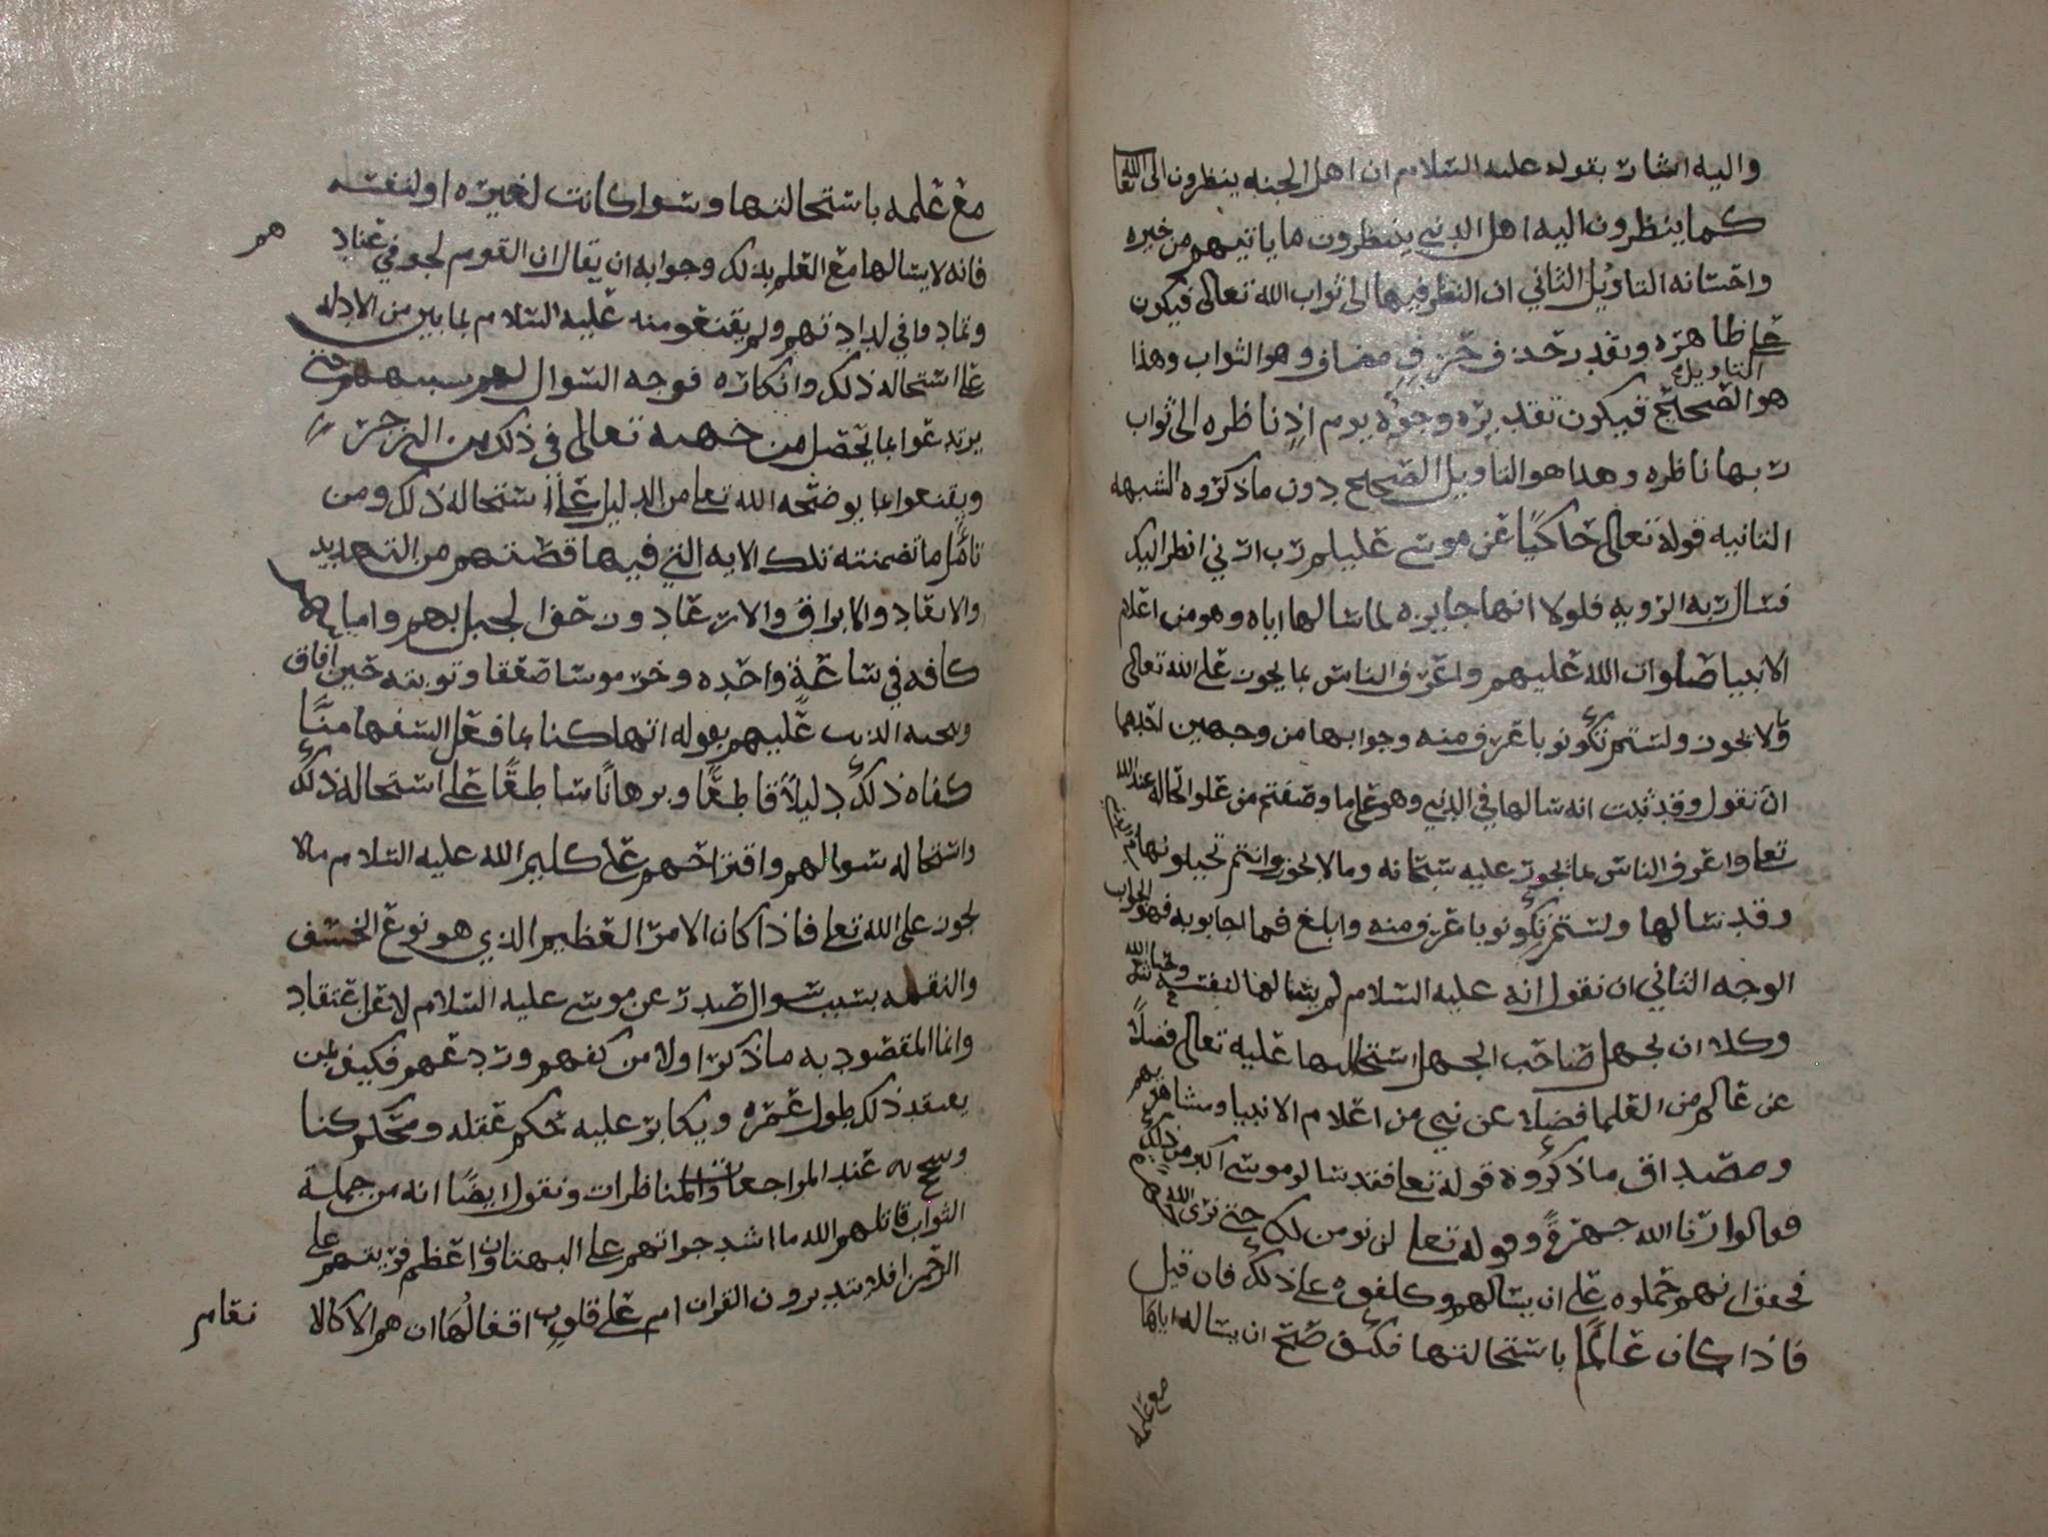 واليه اشار بقوله عليه السلام ان اهل الجنه ينظرون الى الله تعا
كما ينظرون اليه اهل الدنيى ينتظرون ما ياتيهم من خيره
واحسانه التاويل الثاني ان النظر فيها الى ثواب الله تعالى فيكون
على ظاهره وتقدير حذف مضاف وهو الثواب وهذا
التاويل
هو الصحيح فيكون تقديره وجوه يوم اذٍ ناظره الى ثواب
ربها ناظره وهذا هو التاويل الصحيح دون ما ذكروه الشبهه
الثانيه قوله تعالى حاكيًا عن موسى عليلم رب ارني انظر اليك
فسال ربه الرويه فلولا انها جايزه لما سالها اياه وهو من اعلام
الانبيا صلوات الله عليهم واعرف الناس بما يجوز على الله تعالى
ولا يجوز ولستم تكونو باعرف منه وجوابها من وجهين احدهما
ان نقول وقد ثبت انه سالها في الدنيى وهو على ما وصفتم من علو الحاله عند الله
تعا واعرف الناس بما يجوز عليه سبحانه وما لا يجوز وانتم تحيلونها في الدنيى
وقد سالها ولستم تكونو باعرف منه وابلغ فما اجابو به فهو الجواب
الوجه الثاني ان نقول انه عليه السلام لم يسالها لنفسه وحاشا لله
وكلا ان يجهل صاحب الجهل استحالتها عليه تعالى فضلاً
عن عالم من العلما فضلا عن نبي من اعلام الانبيا ومشاهيرهم
ومصداق ما ذكروه قوله تعا فقد سالو موسى اكبر من ذلك
فقالوا ارنا الله جهرةً وقوله تعا لن نومن لك حتى نرى الله
فحقق انهم حملوه على ان يسالهم وكلفوه على ذلك فان قيل
فاذا كان عالمًا باستحالتها فكيف صح ان يساله اياها
مع علمه
مع علمه باستحالتها وسوا كانت لغيره او لنفسه
فانه لا يسالها مع العلم بذلك وجوابه ان يقال ان القوم لجو في عنادهم
وتمادوا في لدادتهم ولم يقنعو منه عليه السلام بما بين من الادله
على استحاله ذلك وانكاره فوجه السوال لهم حتى
يرتدعوا بما يحصل من جهته تعالى في ذلك من الزجر
ويقنعوا بما يوضحه الله تعا من الدليل على استحاله ذلك ومن
تامل ما تضمنته تلك الايه التي فيها قصتهم من التهديد
والابعاد والابراق والارعاد
كافه في ساعة واحده وخر موسا صعقا وتوبته حين افاق
عليهم بقوله اتهلكنا بما فعل السفها منَّا
كفاه ذلك دليلاً قاطعًا وبرهانًا ساطعًا على استحاله ذلك
واستحاله سوالهم واقتراحهم على كليم الله عليه السلام ما لا
يجوز على الله تعا فاذا كان الامر العظيم الذي هو نوع الخسف
والنقمه بسبب سوال صدر عن موسى عليه السلام لا عن اعتقاد
وانما المقصود به ما ذكر اولا من كفهم وردعهم فكيف بمن
يعتقد ذلك طول عمره ويكابر عليه محكم عقله ومحكم
عند المراجعات والمناظرات ونقول ايضًا انه من جملة
الثواب قاتلهم الله ما اشد جراتهم على البهتان واعظم فريتهم على
الرحمن افلا يتدبرون القران ام على قلوب اقفالُها ان هم الا كالا
نعام